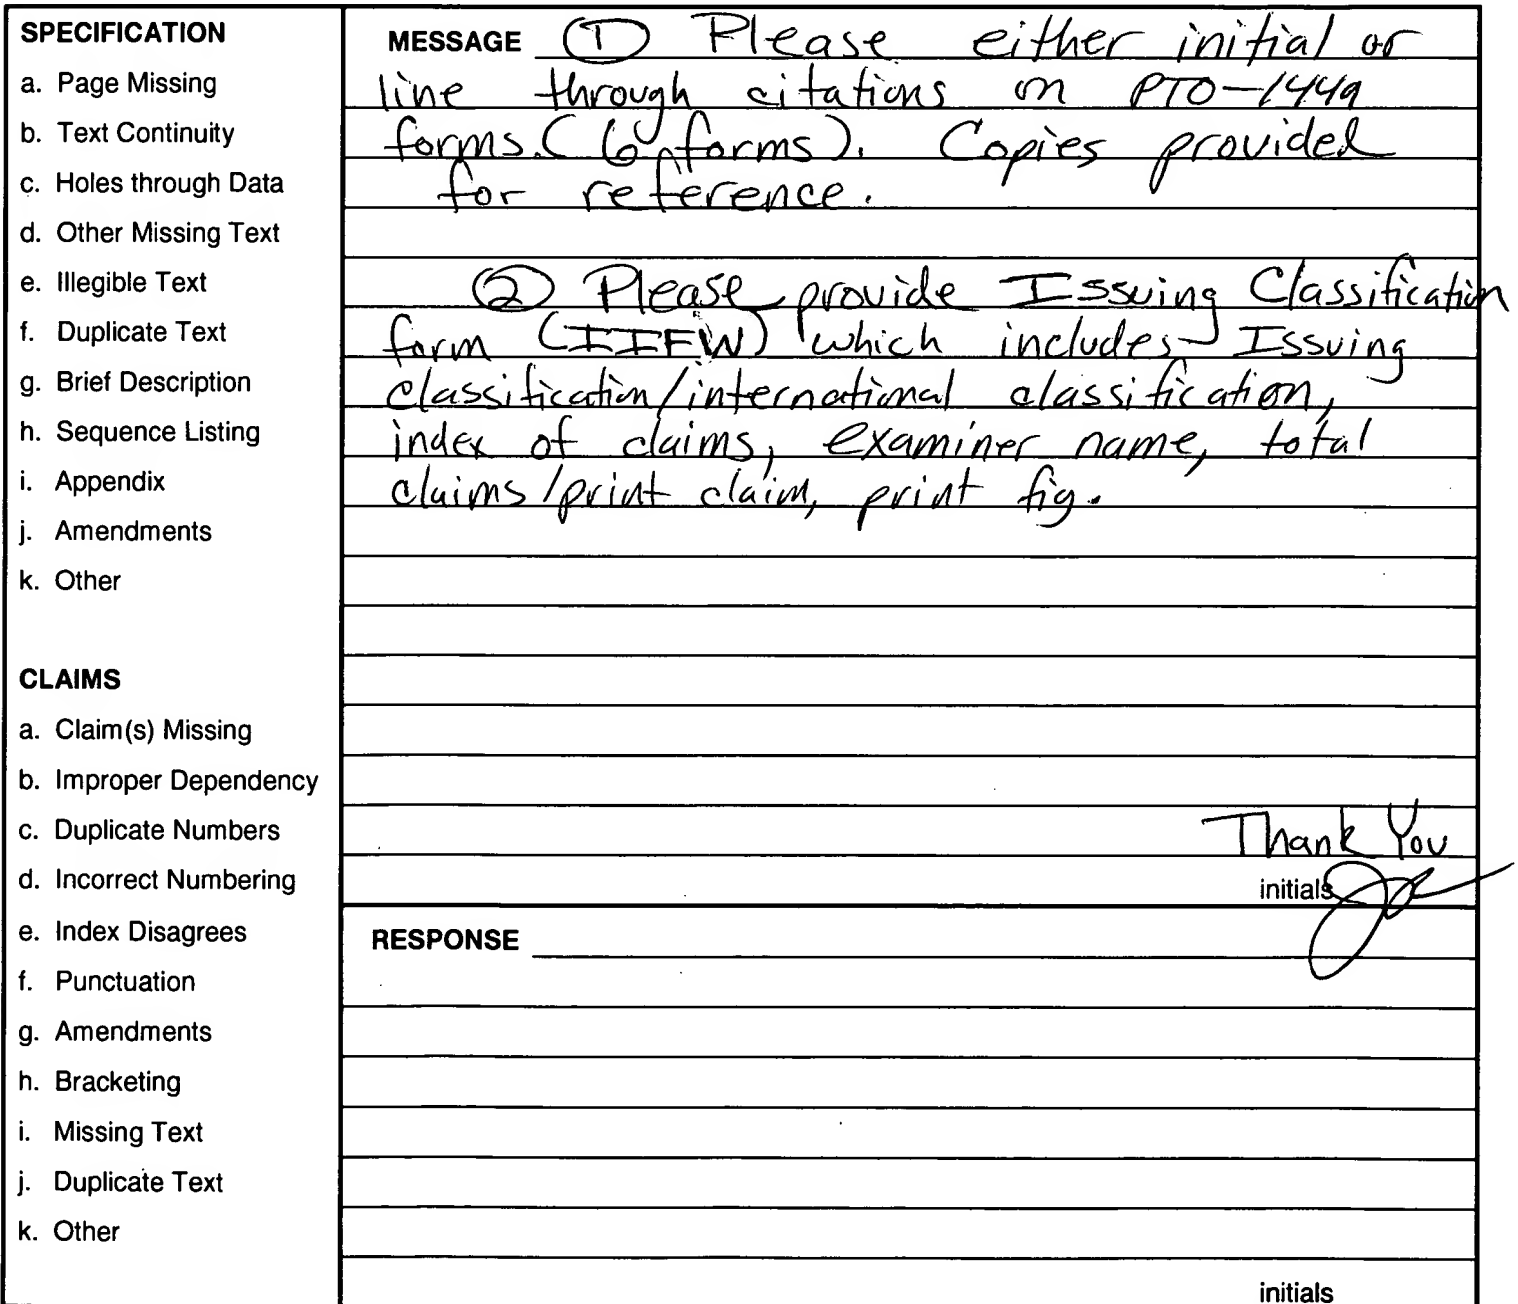 SPECIFICATION
a. Page Missing
b. Text Continuity
c. Holes through Data
d. Other Missing Text
e. Illegible Text
f. Duplicate Text
g. Brief Description
h. Sequence Listing
i. Appendix
j. Amendments
k. Other
CLAIMS
a. Claim(s) Missing
b. Improper Dependency
c. Duplicate Numbers
d. Incorrect Numbering
e. Index Disagrees
f. Punctuation
g. Amendments
h. Bracketing
i. Missing Text
j. Duplicate Text
k. Other
MESSAGE ① Please either initial or
line through citations on PTO-1449
forms. (6 forms). Copies provided
for reference.
② Please provide Issuing Classification
form (IIFW) which includes Issuing
classification/international classification,
index of claims, examiner name, total
claims/print claim, print fig.
Thank You
initials
RESPONSE
initials